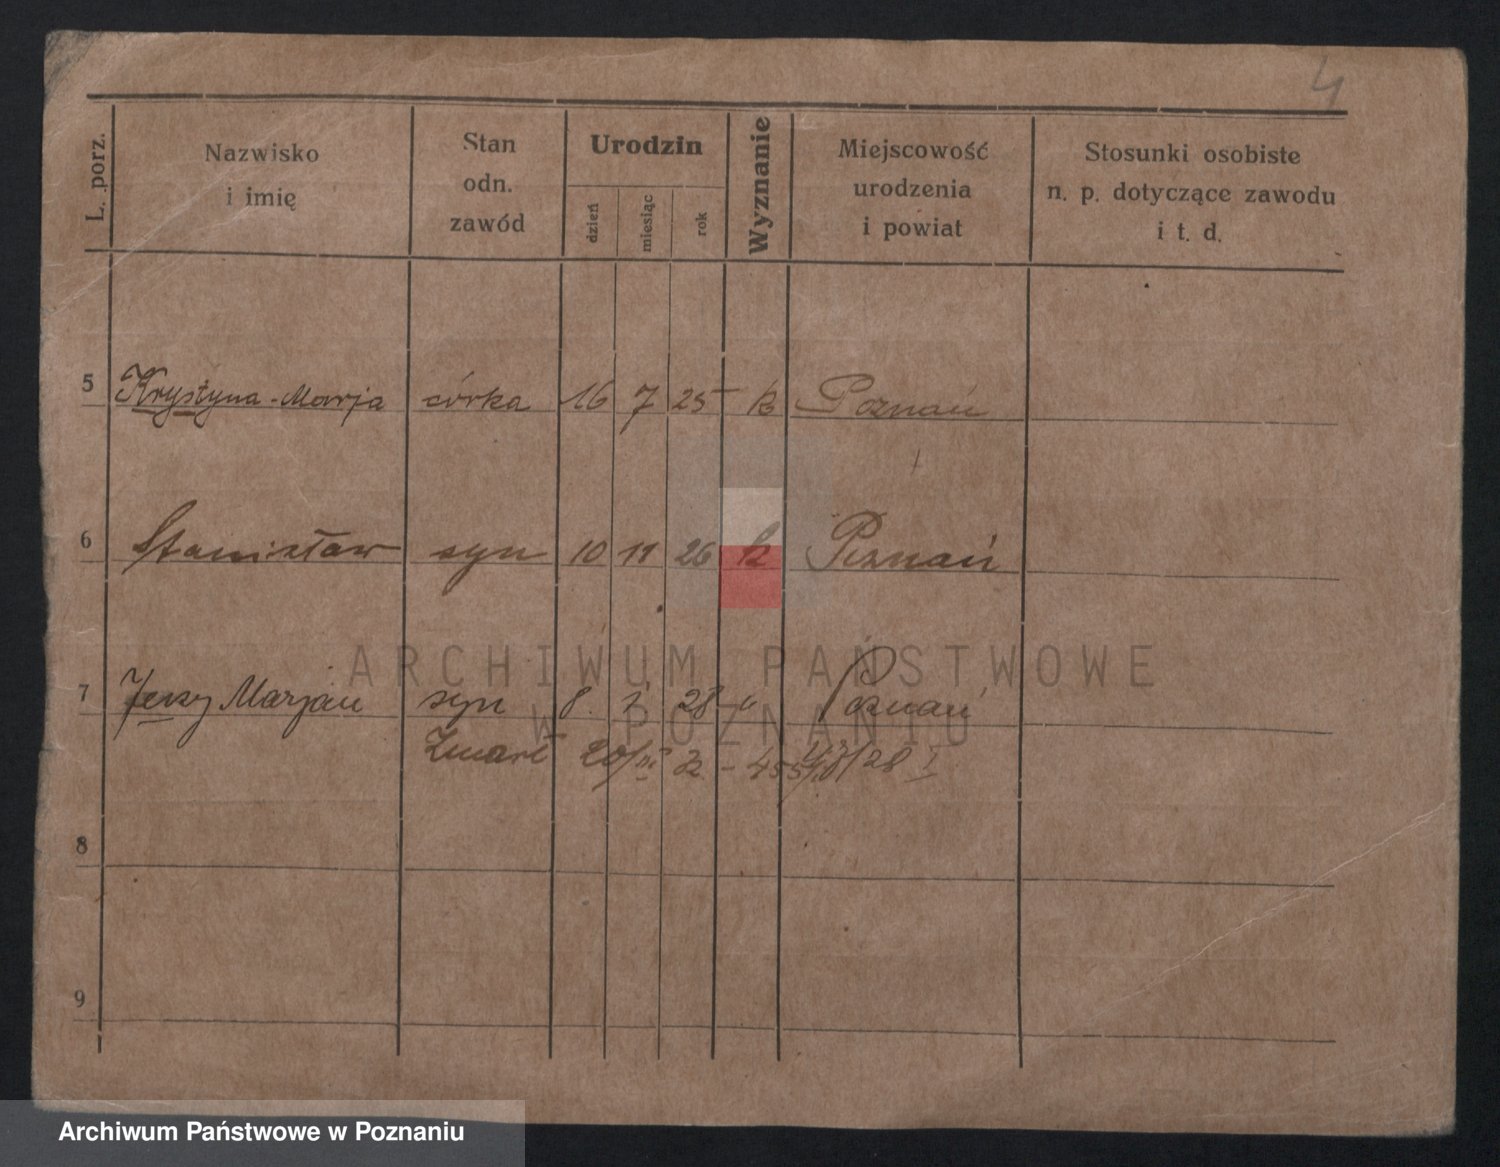 4
L. porz.
Nazwisko
i imię
Stan
odn.
zawód
Urodzin
dzień
miesiąc
rok
Wyznanie
Miejscowość
urodzenia
i powiat
Stosunki osobiste
n. p. dotyczące zawodu
i t. d.
5 Krystyna-Marja córka 16 7 25 k Poznań
6 Stanisław syn 10 11 26 k Poznań
7 Jerzy Marjan syn 8. 28 " Poznań
Zmarł 20/ 32 - /28 I
8
9
ARCHIWUM PAŃSTWOWE
W POZNANIU
Archiwum Państwowe w Poznaniu